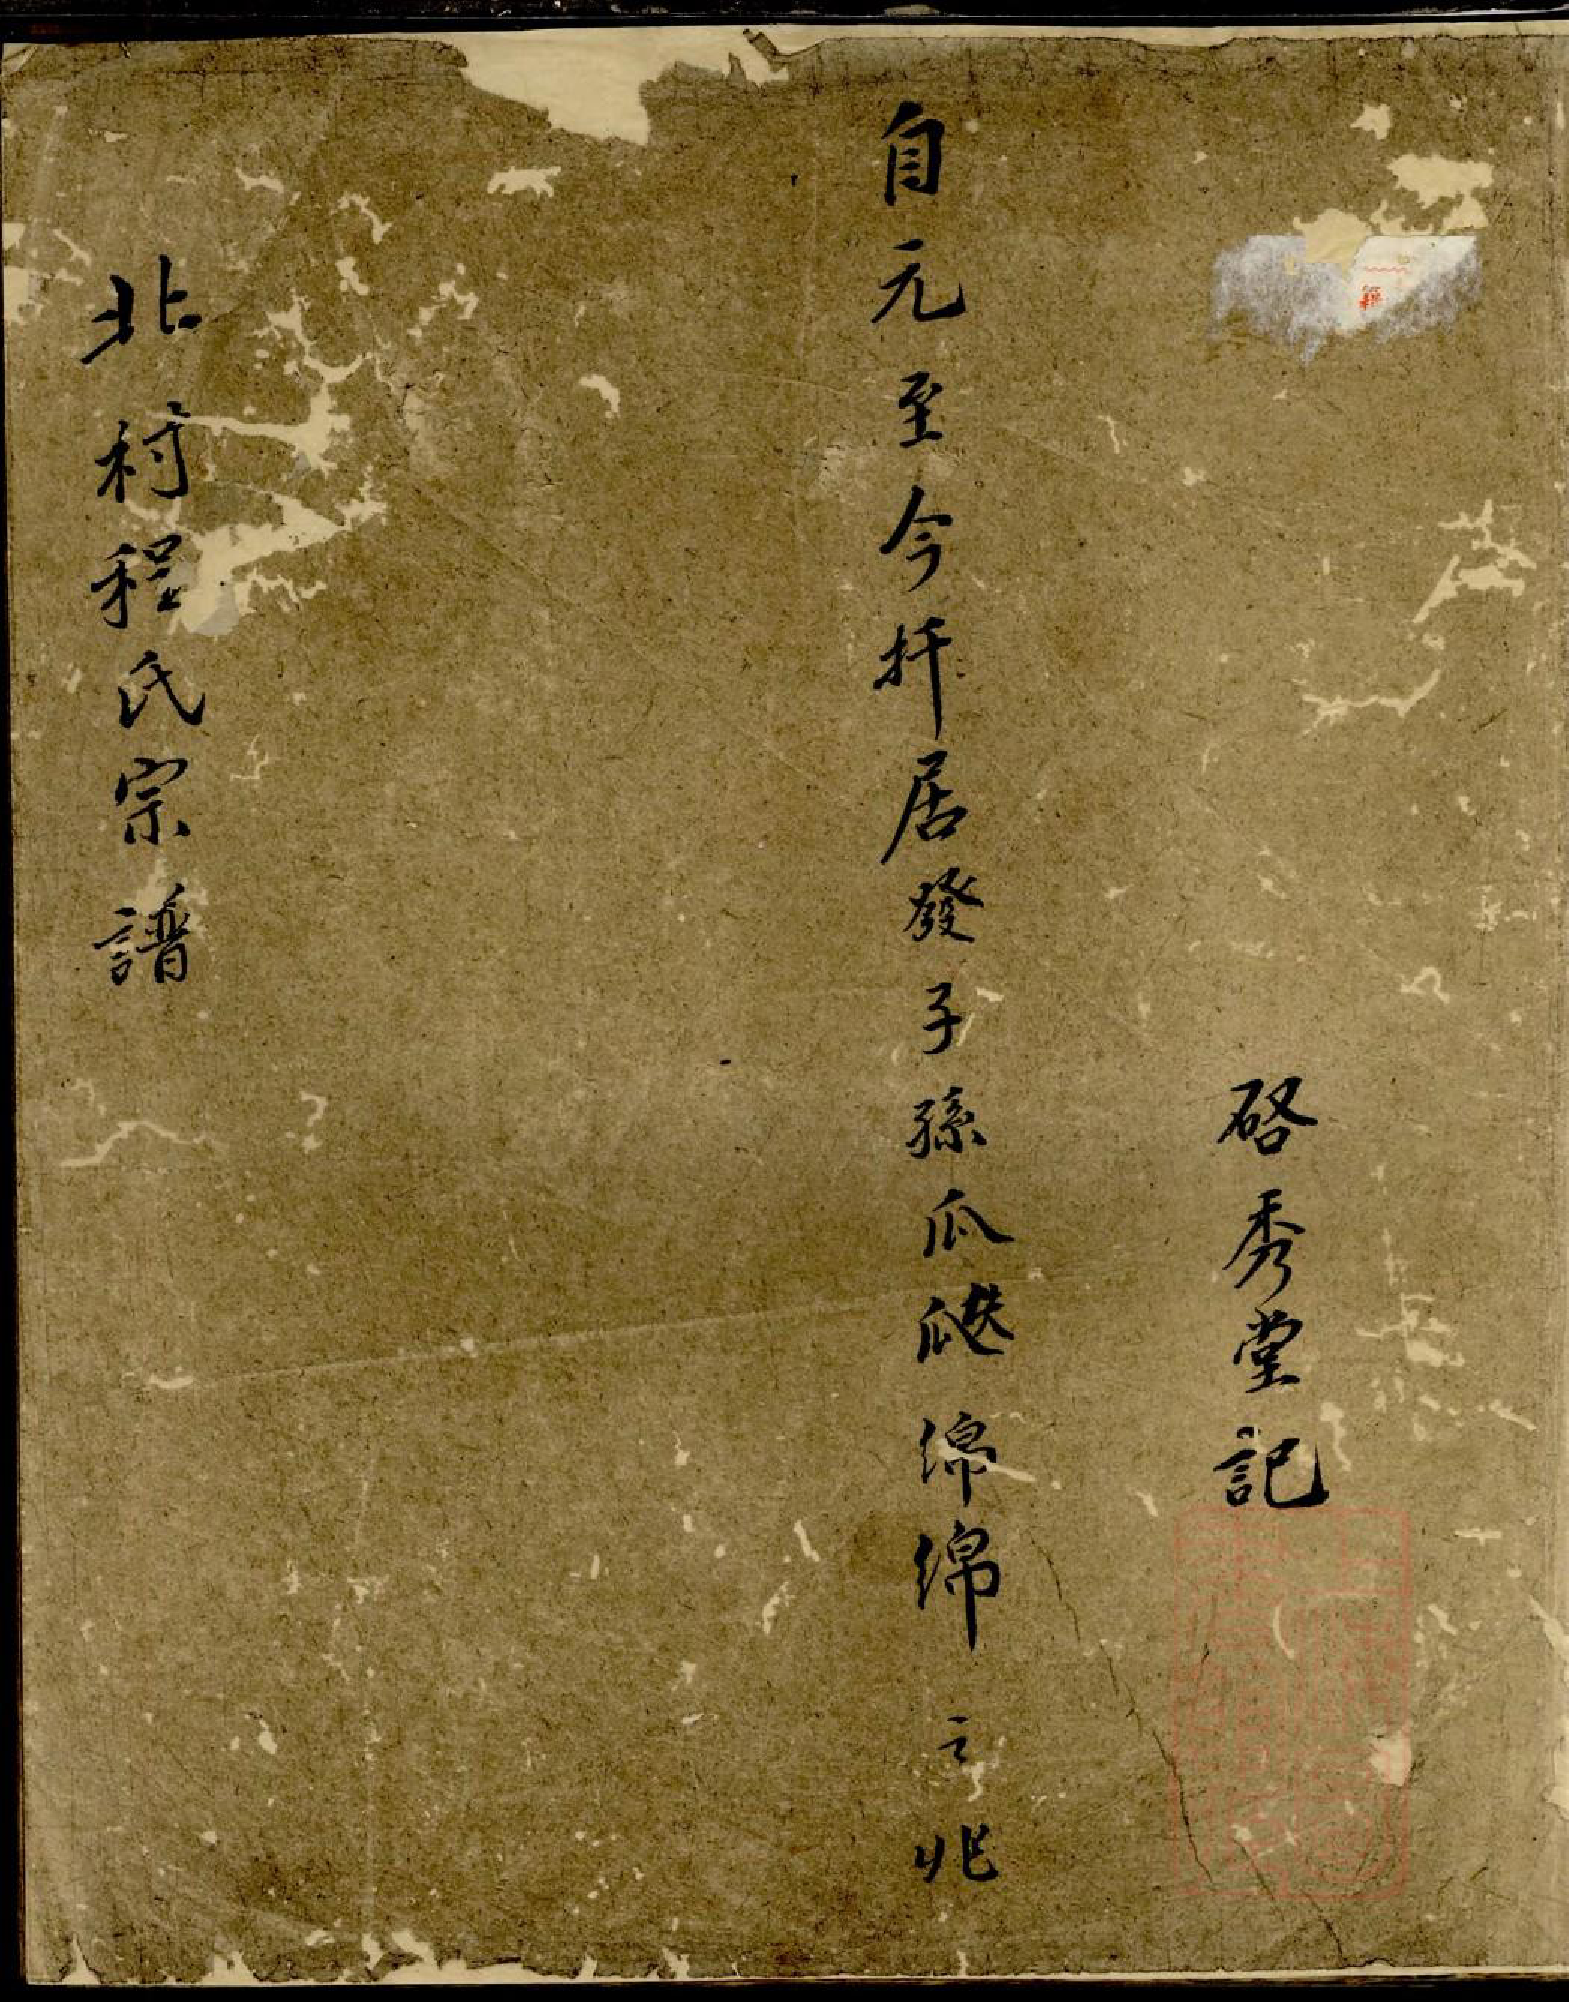 籍
啓秀堂記
自元至今扦居發子孫瓜瓞綿綿之兆
北村程氏宗譜